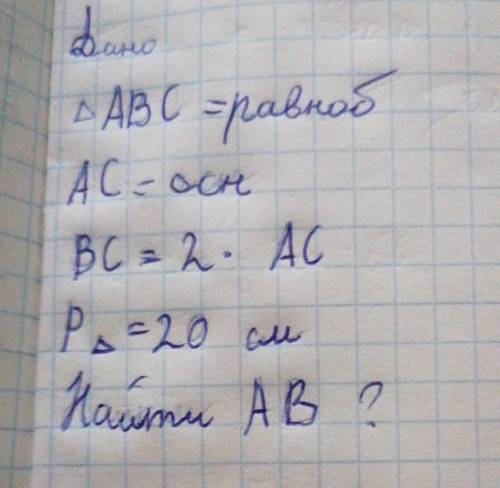 Дано
△ABC = равноб
AC = осн
BC = 2 · AC
P△ = 20 см
Найти AB ?